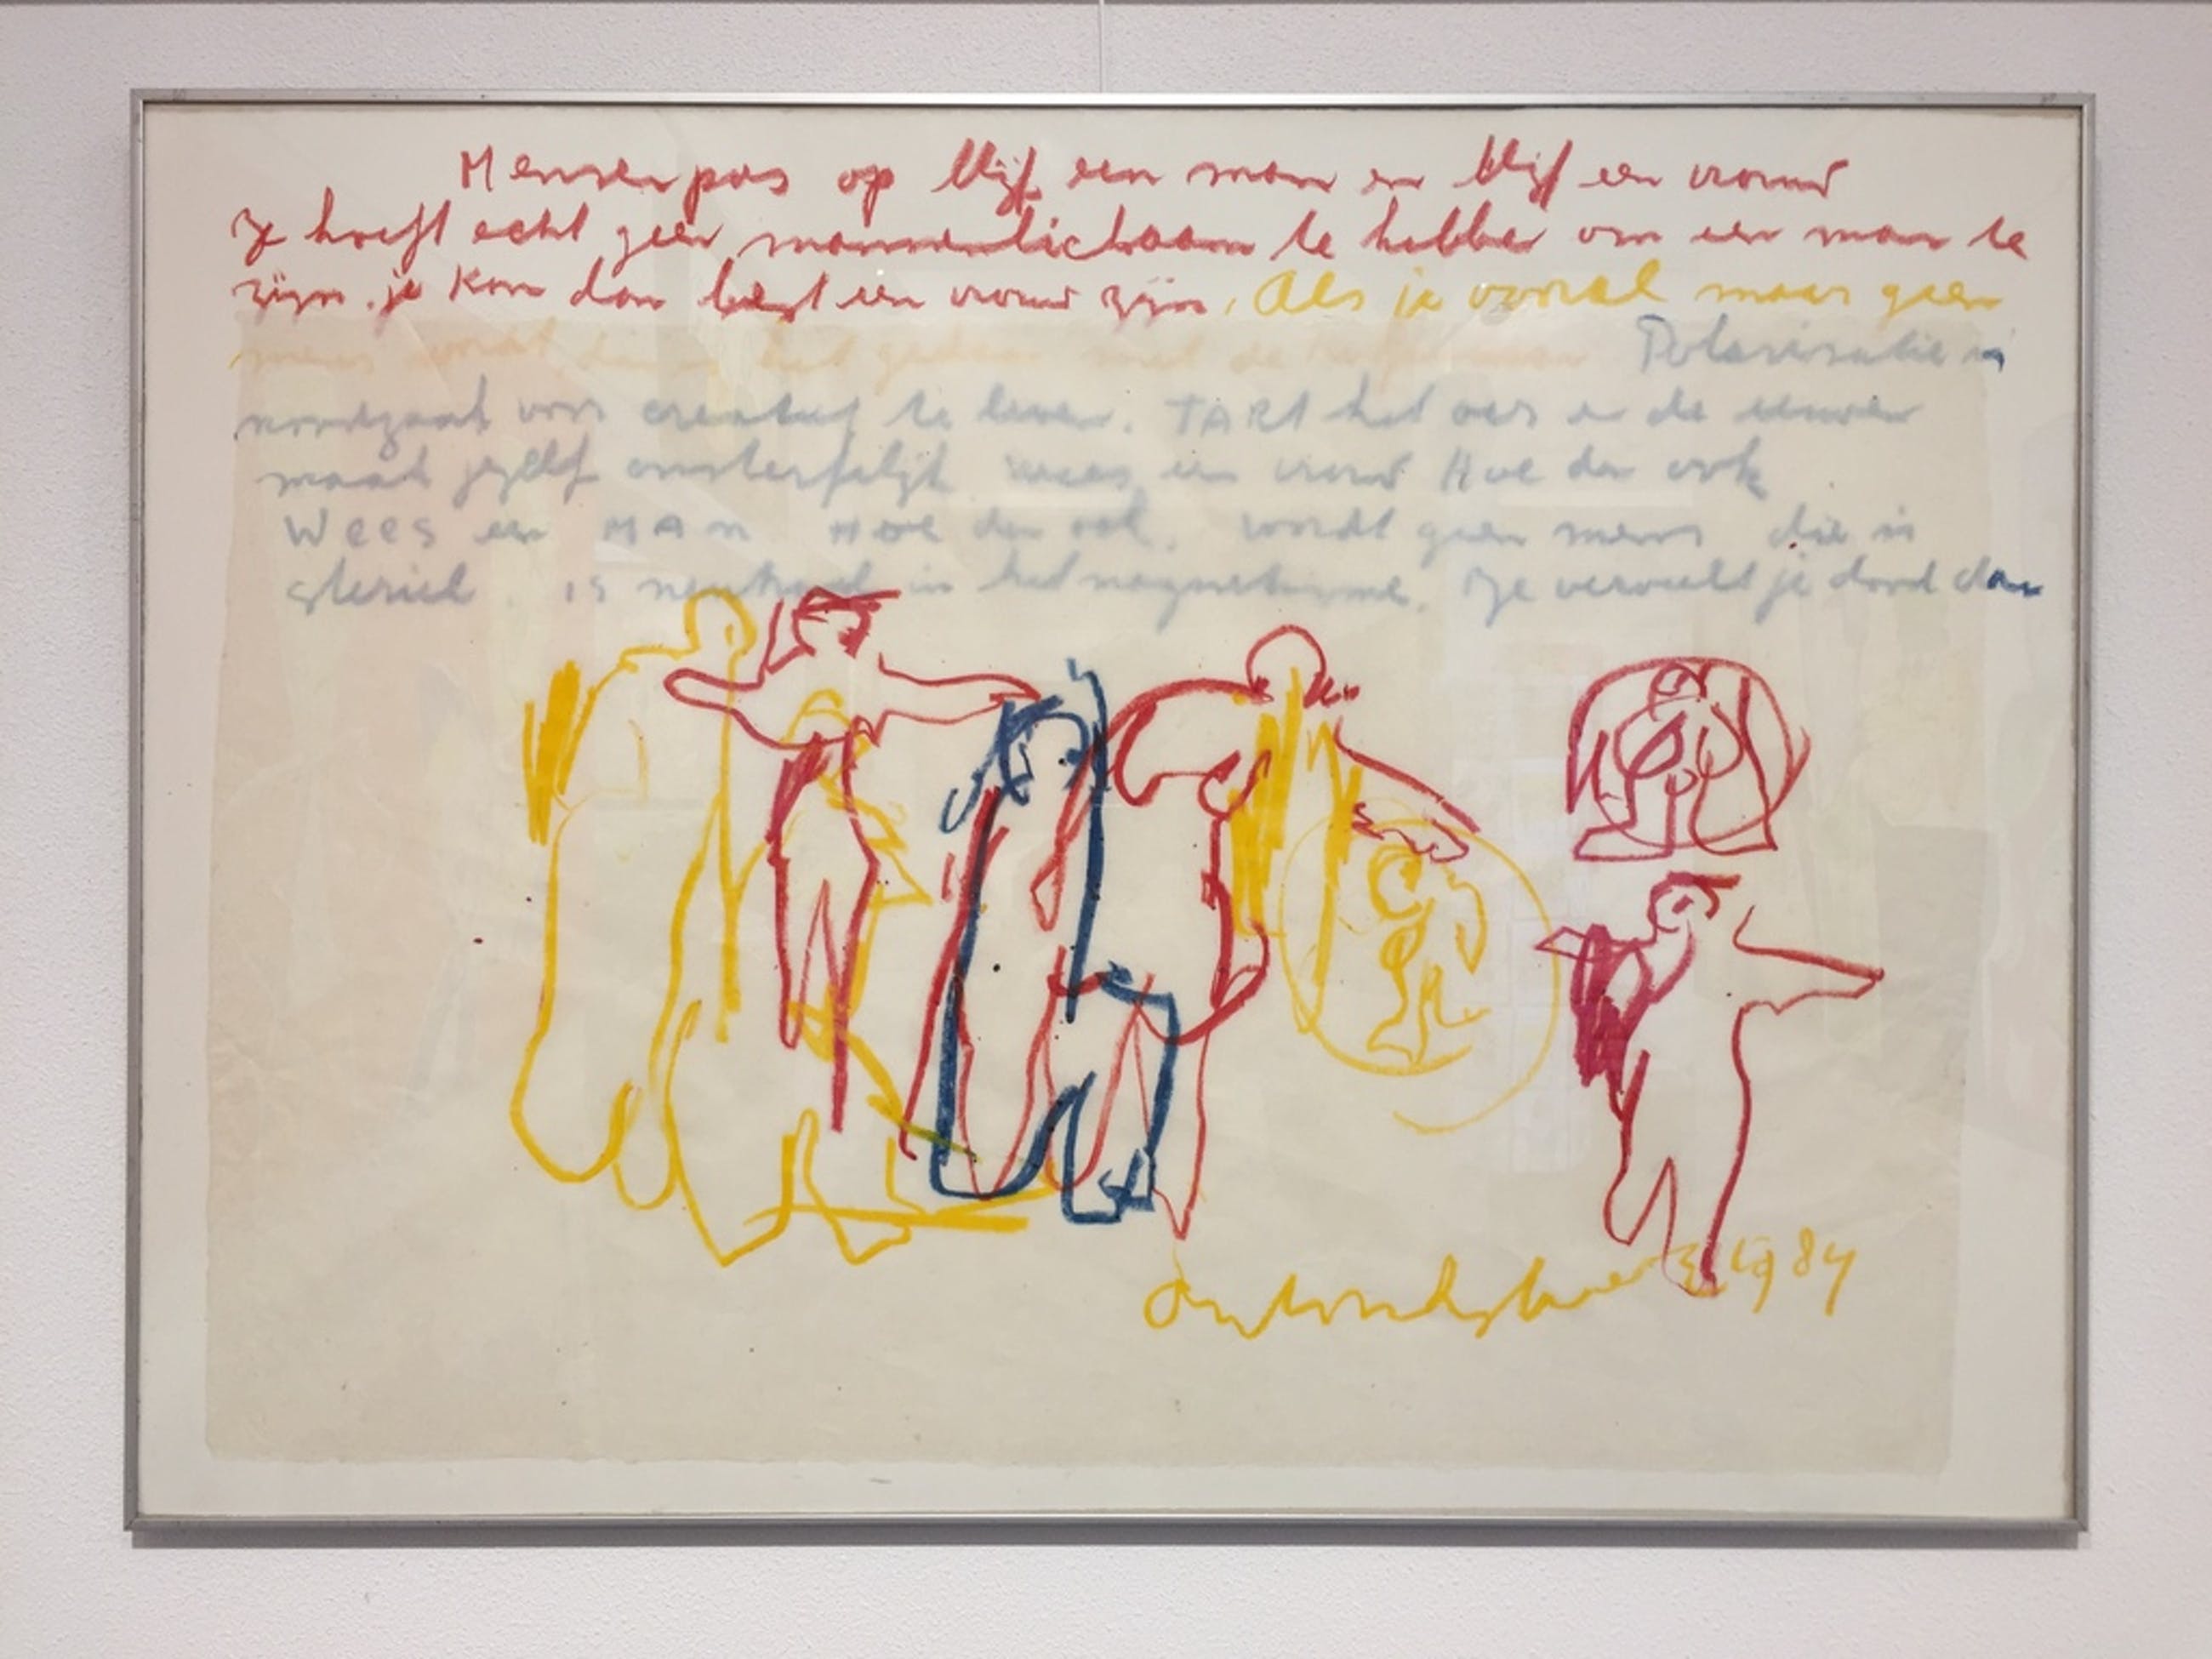 Mensen pas op blijf een man en blijf een vrouw
Je hoeft echt geen mannenlichaam te hebben om een man te
zijn. je kan dan best een vrouw zijn. Als je vooral maar geen
mens wordt, dan is het gedaan met de
Polarisatie is
noodzaak voor creatief te leven. TART het oer en de eeuwen
maak jezelf onsterfelijk wees een vrouw Hoe dan ook
Wees een MAN HOE dan ook. wordt geen mens die is
steriel. is neutraal in het magnetisme. Je verveelt je dood dan
1984